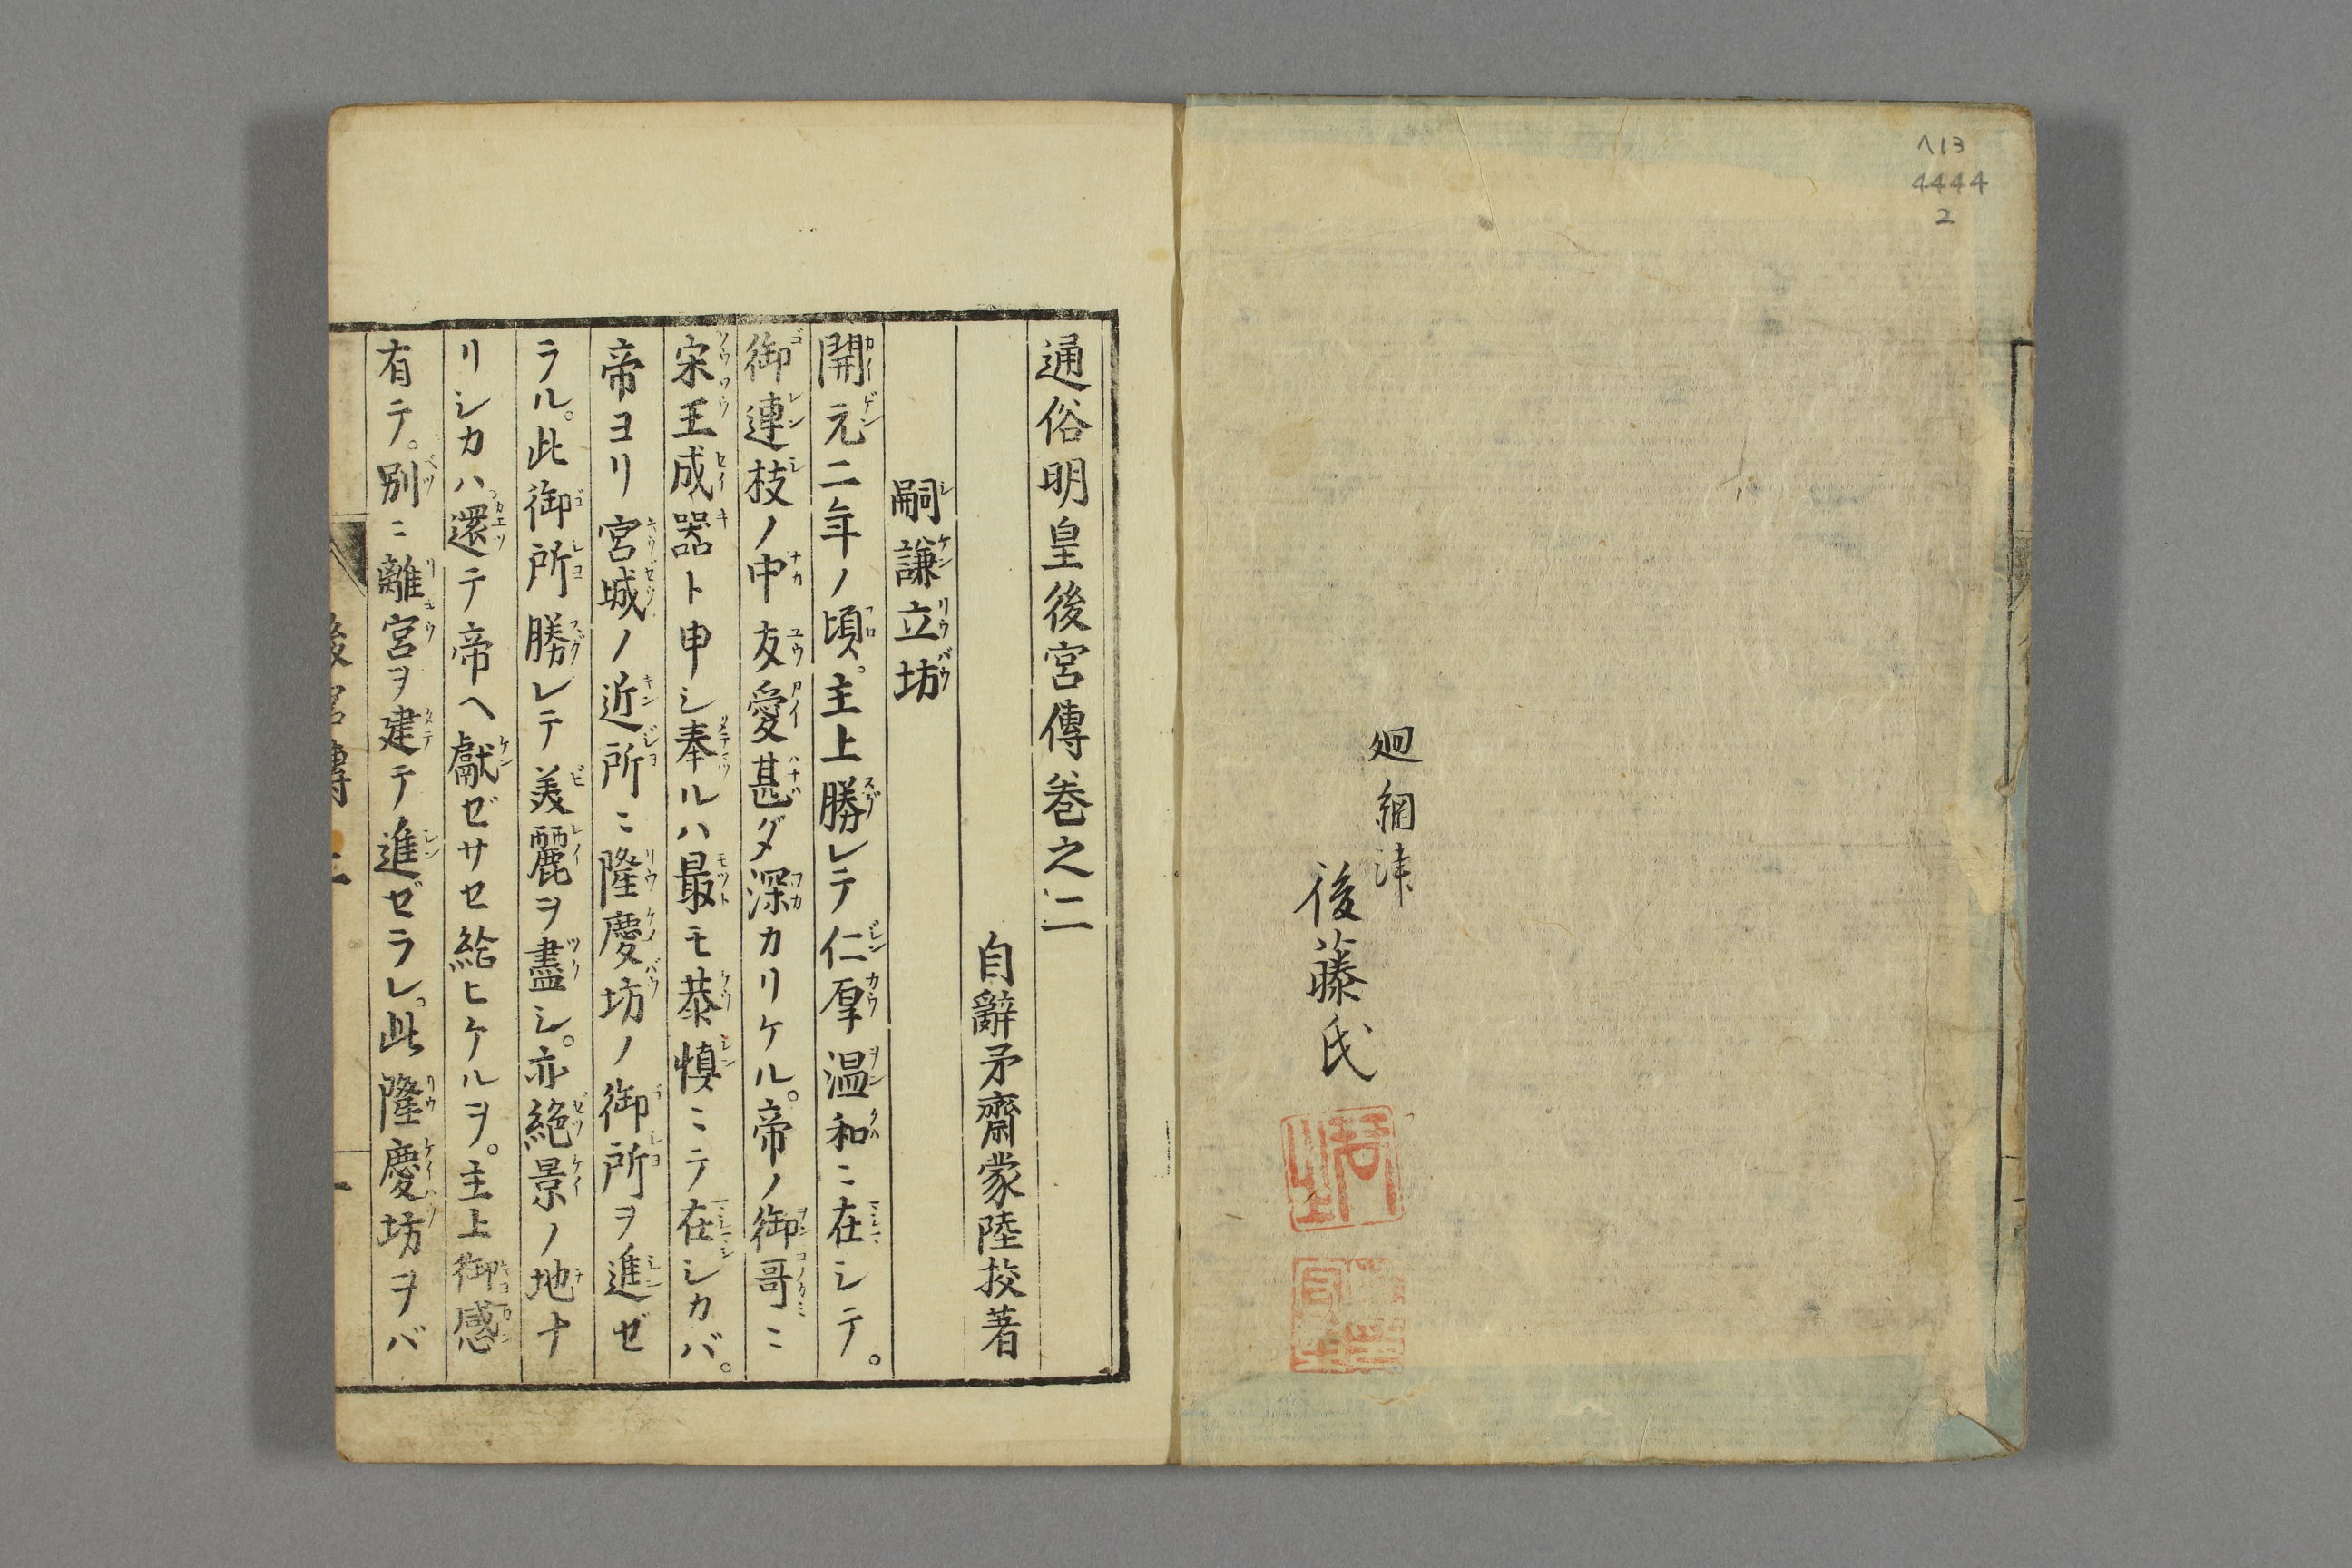 ヘ13
4444
2
廻網津
後藤氏
通俗明皇後宮傳巻之二
自辭矛齋蒙陸挍著
嗣謙立坊
開元二年ノ頃。主上勝レテ仁厚温和ニ在シテ。
御連枝ノ中友愛甚ダ深カリケル。帝ノ御哥ニ
宋王成器ト申シ奉ルハ最モ恭慎ニテ在シカバ。
帝ヨリ宮城ノ近所ニ隆慶坊ノ御所ヲ進ゼ
ラル。此御所勝レテ美麗ヲ盡シ。亦絶景ノ地ナ
リシカハ還テ帝ヘ獻ゼサセ給ヒケルヲ。主上御感
有テ。別ニ離宮ヲ建テ進ゼラレ。此隆慶坊ヲバ
後宮傳 二